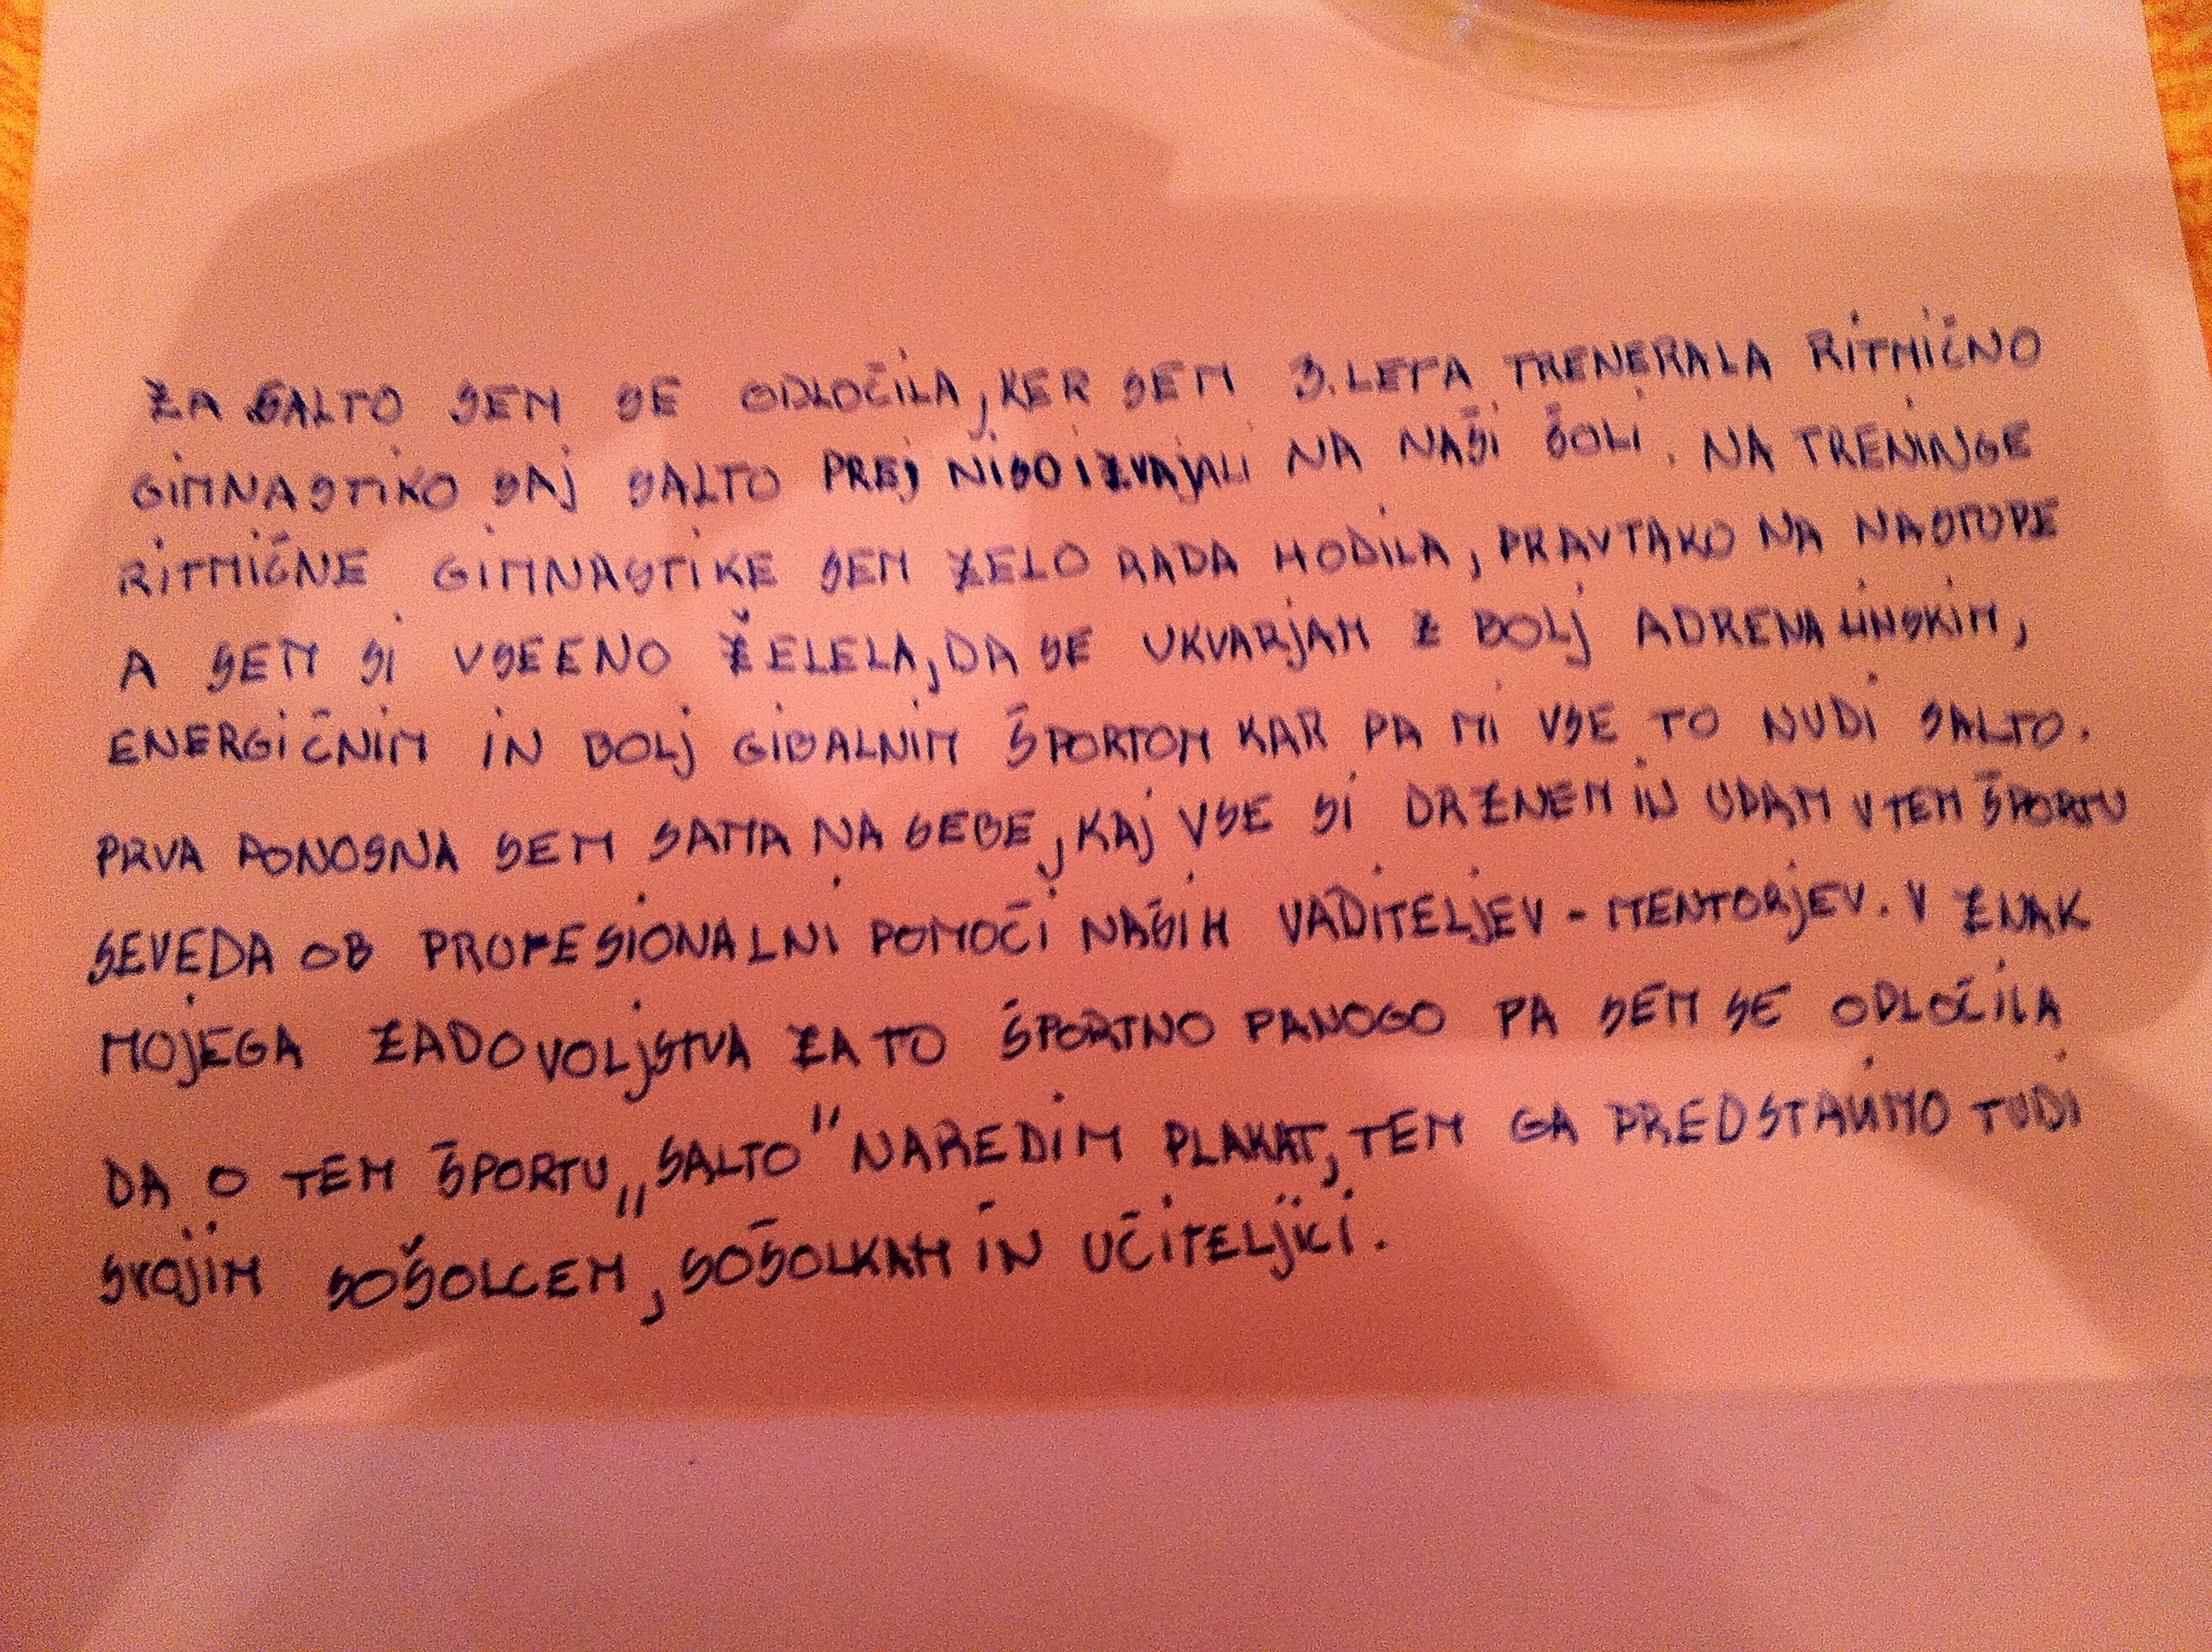 ZA SALTO SEM SE ODLOČILA, KER SEM 3. LETA TRENERALA RITMIČNO
GIMNASTIKO SAJ SALTO PREJ NISO IZVAJALI NA NAŠI ŠOLI. NA TRENINGE
RITMIČNE GIMNASTIKE SEM ZELO RADA HODILA, PRAVTAKO NA NASTOPE
A SEM SI VSEENO ŽELELA, DA SE UKVARJAM Z BOLJ ADRENALINSKIM,
ENERGIČNIM IN BOLJ GIBALNIM ŠPORTOM KAR PA MI VSE TO NUDI SALTO.
PRVA PONOSNA SEM SAMA NA SEBE, KAJ VSE SI DRZNEM IN UPAM V TEM ŠPORTU
SEVEDA OB PROFESIONALNI POMOČI NAŠIH VADITELJEV - MENTORJEV. V ZNAK
MOJEGA ZADOVOLJSTVA ZA TO ŠPORTNO PANOGO PA SEM SE ODLOČILA
DA O TEM ŠPORTU „SALTO" NAREDIM PLAKAT, TEM GA PREDSTAVIMO TUDI
SVOJIM SOŠOLCEM, SOŠOLKAM IN UČITELJICI.